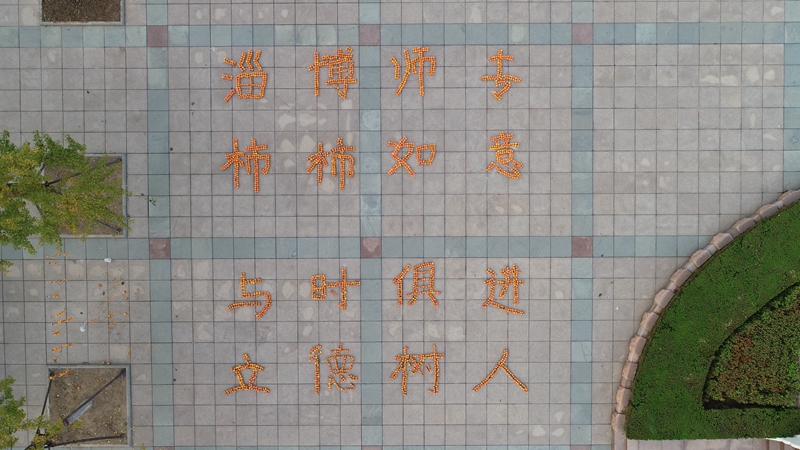 淄博师专
柿柿如意
与时俱进
立德树人